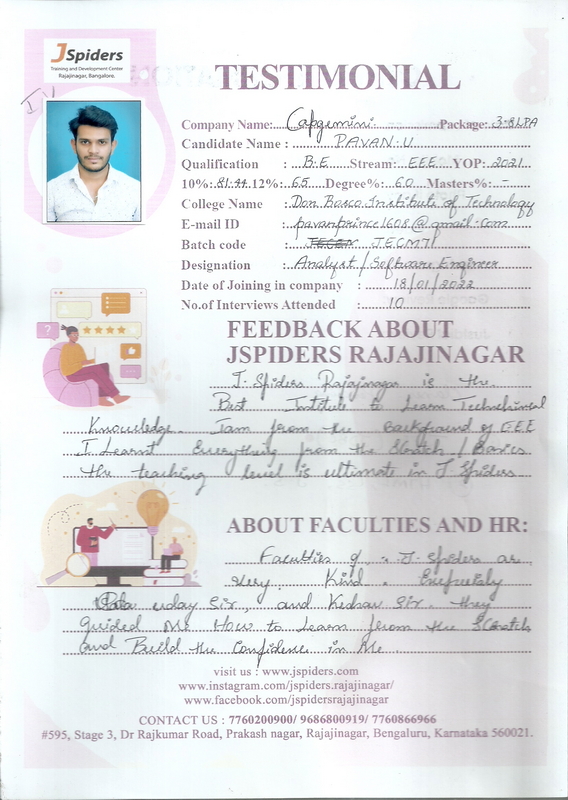 JSpiders
Training and Development Center
Rajajinagar, Bangalore.
TESTIMONIAL
Company Name: Capgemini Package: 3.8LPA
Candidate Name : PAVAN.U
Qualification : B.E Stream: EEE YOP: 2021
10%: 81.44 12%: 65 Degree%: 60 Masters%: -
College Name : Don Bosco Institute of Technology
E-mail ID : pavanprince1608@gmail.com
Batch code : JECM71
Designation : Analyst / Software Engineer
Date of Joining in company : 18/01/2022
No.of Interviews Attended : 10
FEEDBACK ABOUT
JSPIDERS RAJAJINAGAR
J-Spiders Rajajinagar is the
Best Institute to Learn
Knowledge. I am from the Background of EEE
I Learnt Everything from the Scratch / Basics
the teaching level is ultimate in J Spiders
ABOUT FACULTIES AND HR:
Faculties of J-Spiders are
Very Kind.
uday Sir, and Keshav Sir. they
guided Me How to Learn from the Scratch
and Build the Confidence in Me.
visit us : www.jspiders.com
www.instagram.com/jspiders.rajajinagar/
www.facebook.com/jspidersrajajinagar
CONTACT US : 7760200900/ 9686800919/ 7760866966
#595, Stage 3, Dr Rajkumar Road, Prakash nagar, Rajajinagar, Bengaluru, Karnataka 560021.